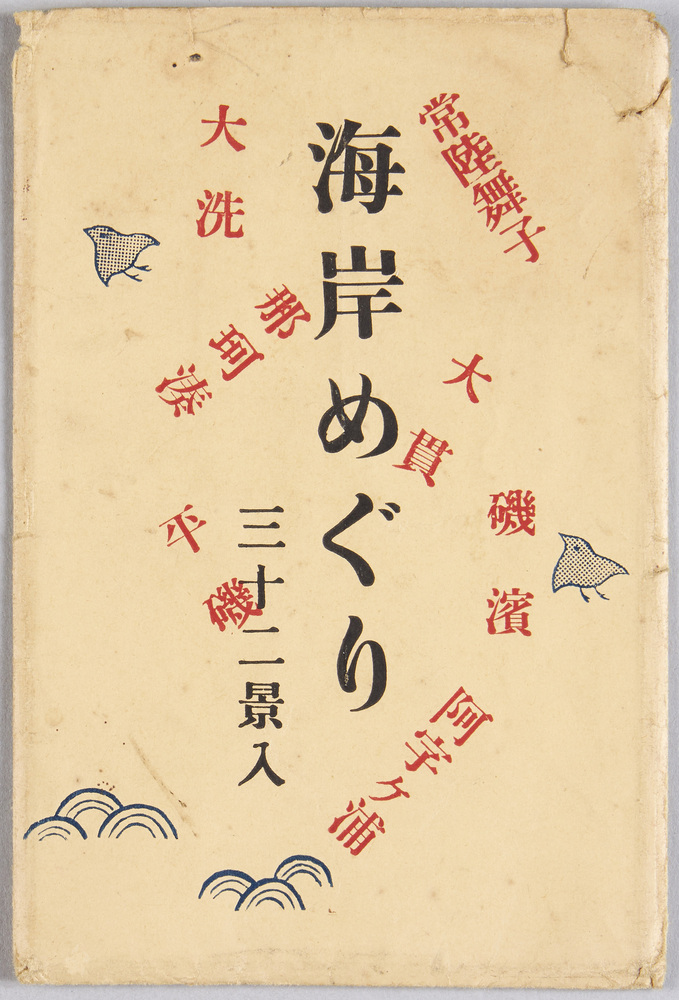 常陸舞子
大貫
磯濱
阿字ヶ浦
海岸めぐり
三十二景入
大洗
那珂湊
平磯